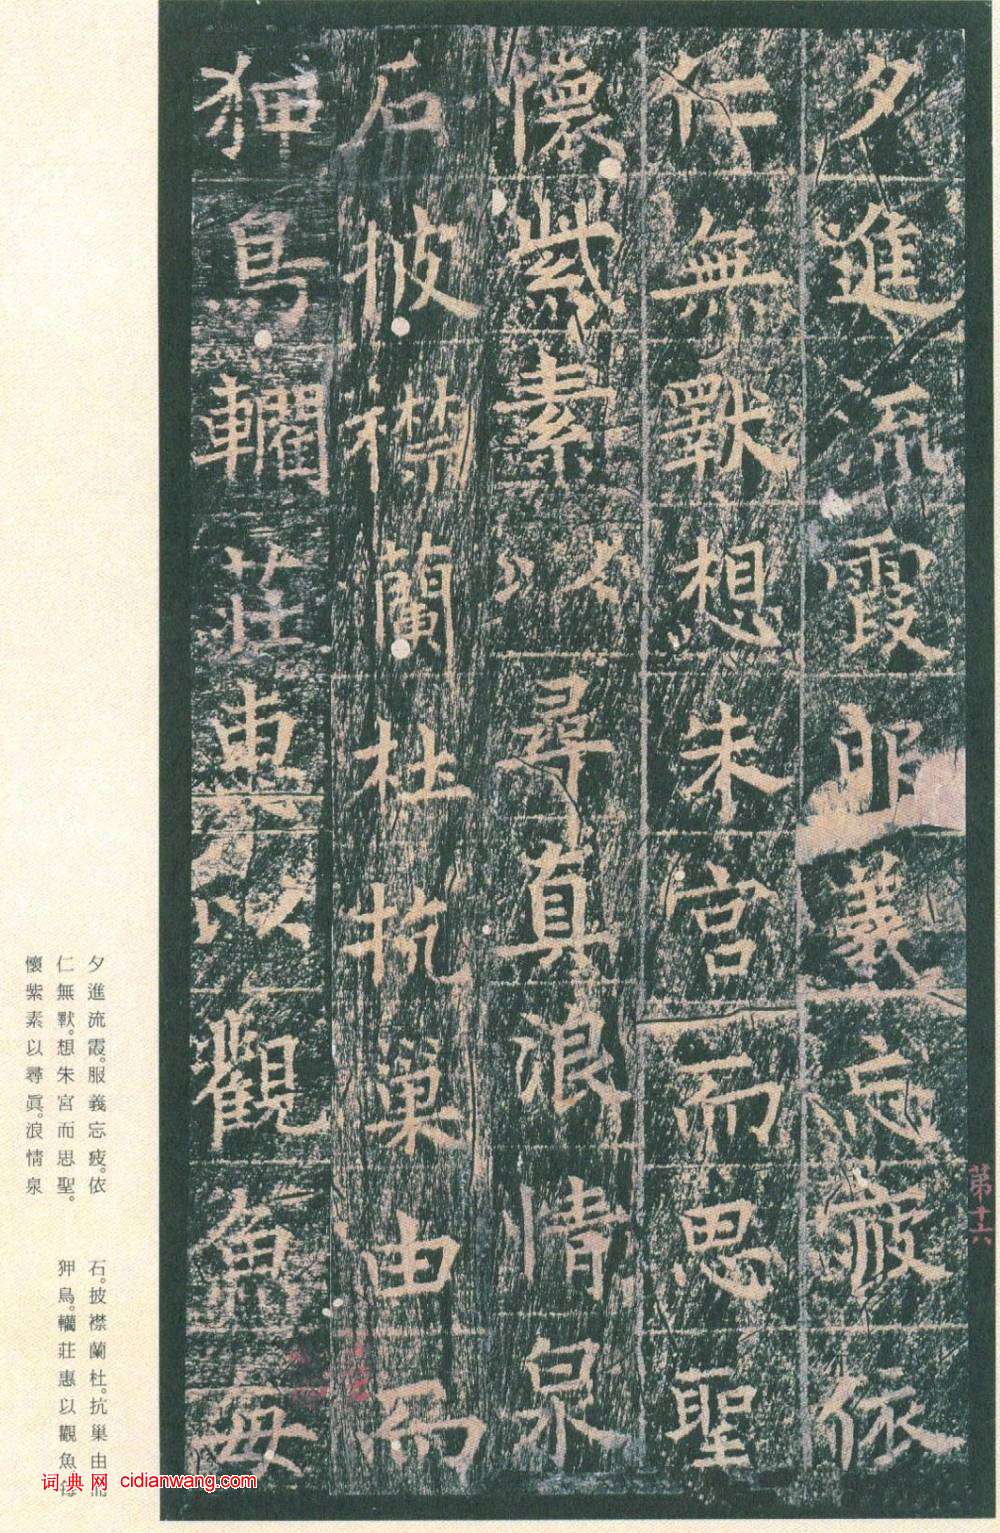 夕進流霞服義忘疲依
仁無斁想朱宮而思聖
懷紫素以尋真浪情泉
石披襟蘭杜抗巢由而
狎鳥轥莊惠以觀魚每
第十六
夕進流霞。服義忘疲。依
仁無斁。想朱宮而思聖。
懷紫素以尋眞。浪情泉
石。披襟蘭杜。抗巢由而
狎鳥。轥莊惠以觀魚每
词典网 cidianwang.com